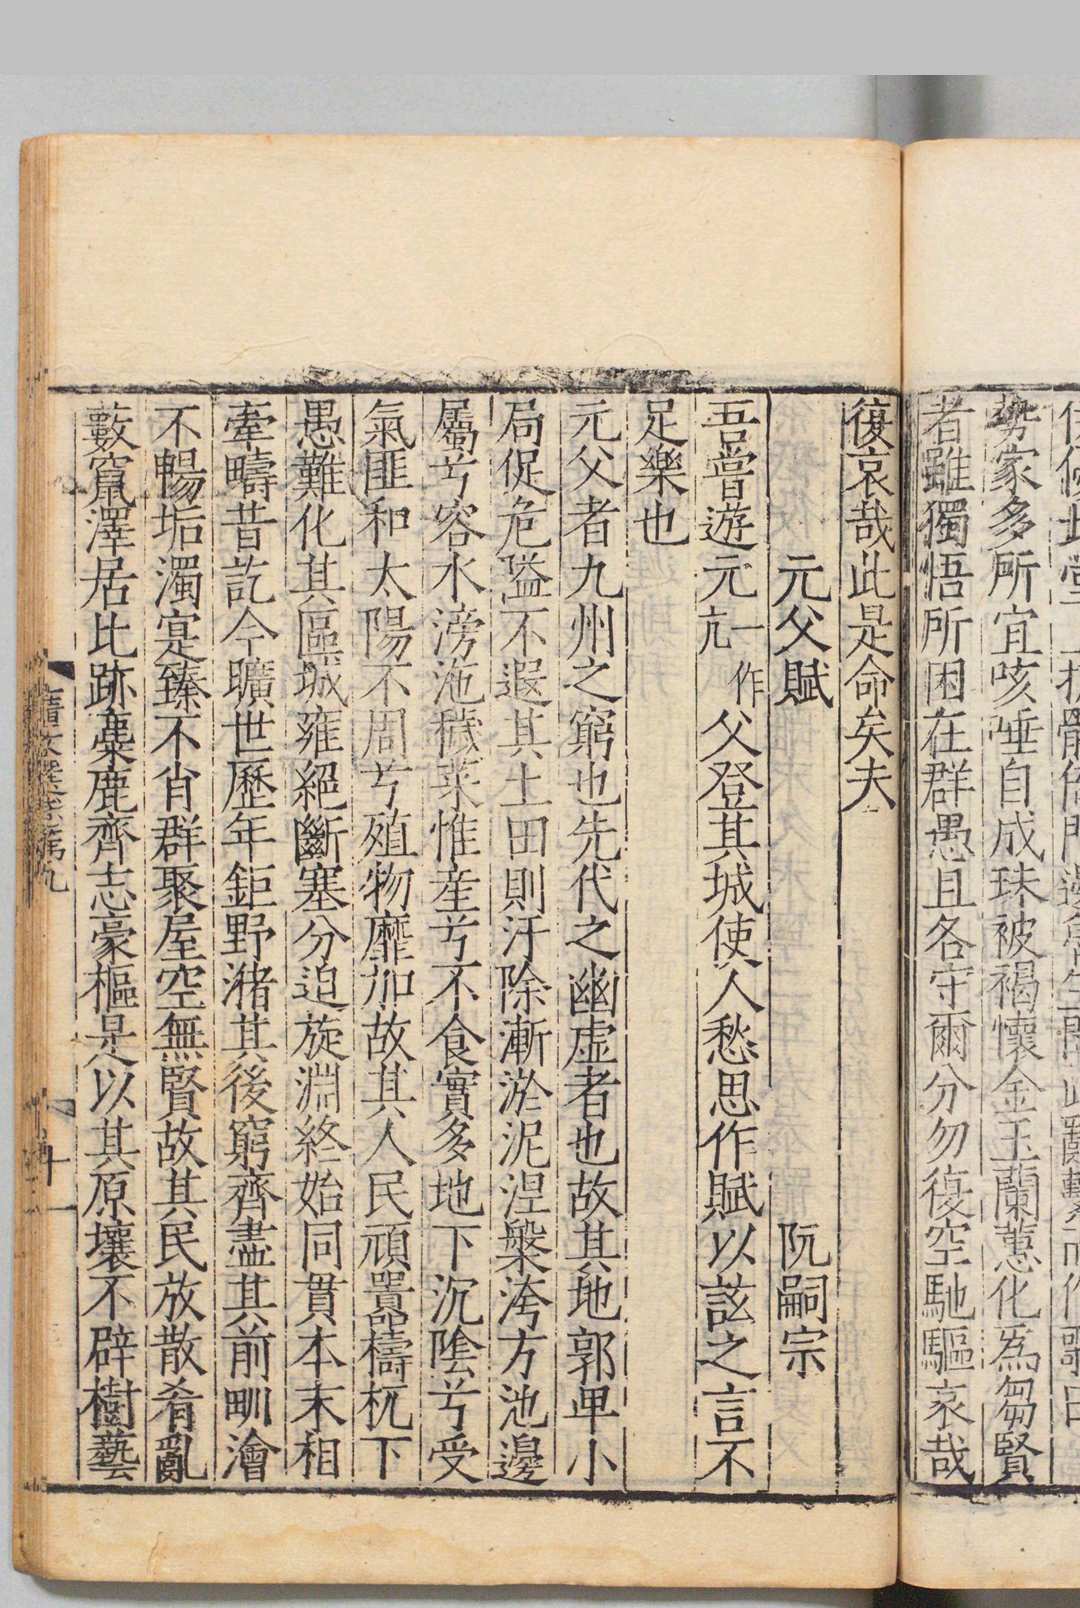 勢家多所宜咳唾自成珠被褐懷金玉蘭蕙化爲芻賢
者雖獨悟所困在群愚且各守爾分勿復空馳驅哀哉
復哀哉此是命矣夫
元父賦 阮嗣宗
吾嘗遊元一作亢父登其城使人愁思作賦以詃之言不
足樂也
元父者九州之窮也先代之幽虛者也故其地郭卑小
局促危隘不遐其土田則汙除漸淤泥涅槃洿方池邊
屬兮容水滂沲穢菜惟産兮不食實多地下沉陰兮受
氣匪和太陽不周兮殖物靡加故其人民頑嚚檮杌下
愚難化其區域雍絕斷塞分迫旋淵終始同貫本末相
牽疇昔訖今曠世歷年鉅野瀦其後窮齊盡其前甽澮
不暢垢濁寔臻不肖群聚屋空無賢故其民放散肴亂
藪竄澤居比跡麋鹿齊志豪樞是以其原壤不辟樹藝